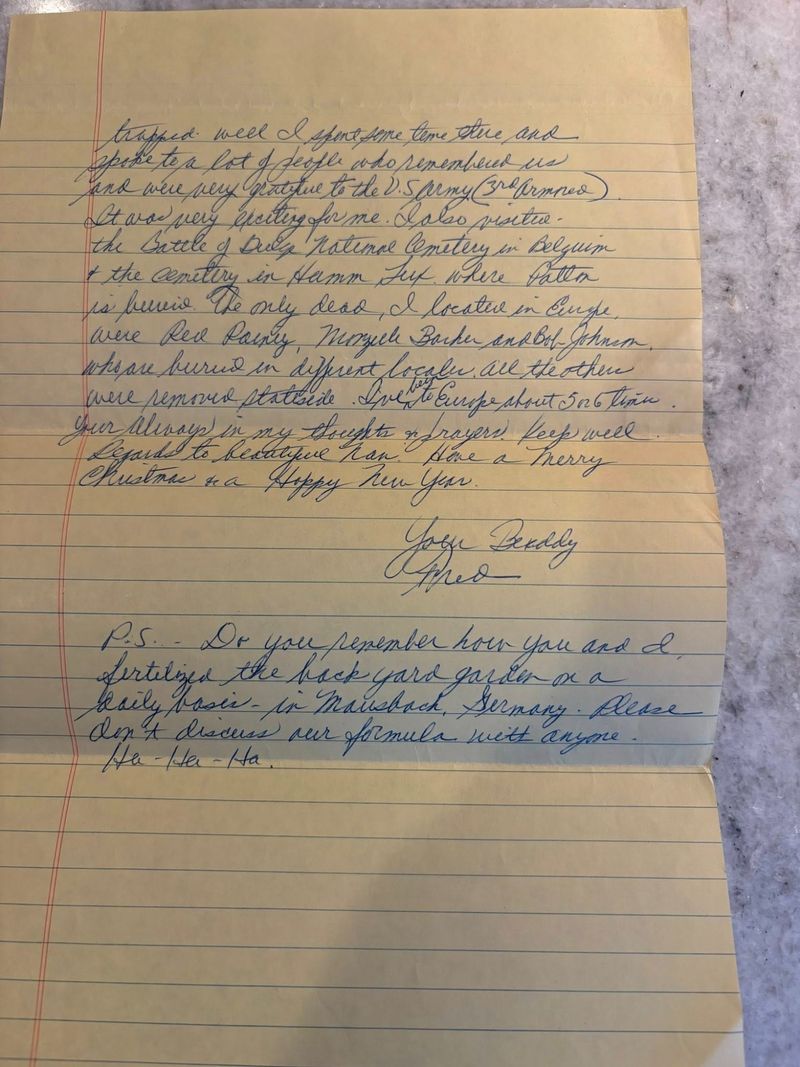 trapped. well I spent some time there and
spoke to a lot of people who remembered us
and were very grateful to the U.S Army (3rd Armored)
It was very exciting for me. I also visited
the Battle of Bulge National Cemetery in Belguim
& the cemetery in Hamm, Lux. where Patton
is buried. The only dead, I located in Europe,
were Red Rainey, Barker and Bob Johnson,
who are buried in different locales. All the others
were removed stateside. I've been to Europe about 5 or 6 times.
Your Always in my thoughts & prayers. Keep well.
Regards to beautiful Nan. Have a Merry
Christmas & a Happy New Year.
Your Buddy
Fred
P.S. - Do you remember how you and I,
fertilized the back yard garden on a
daily basis - in Mausbach, Germany. Please
don't discuss our formula with anyone.
Ha - Ha - Ha.